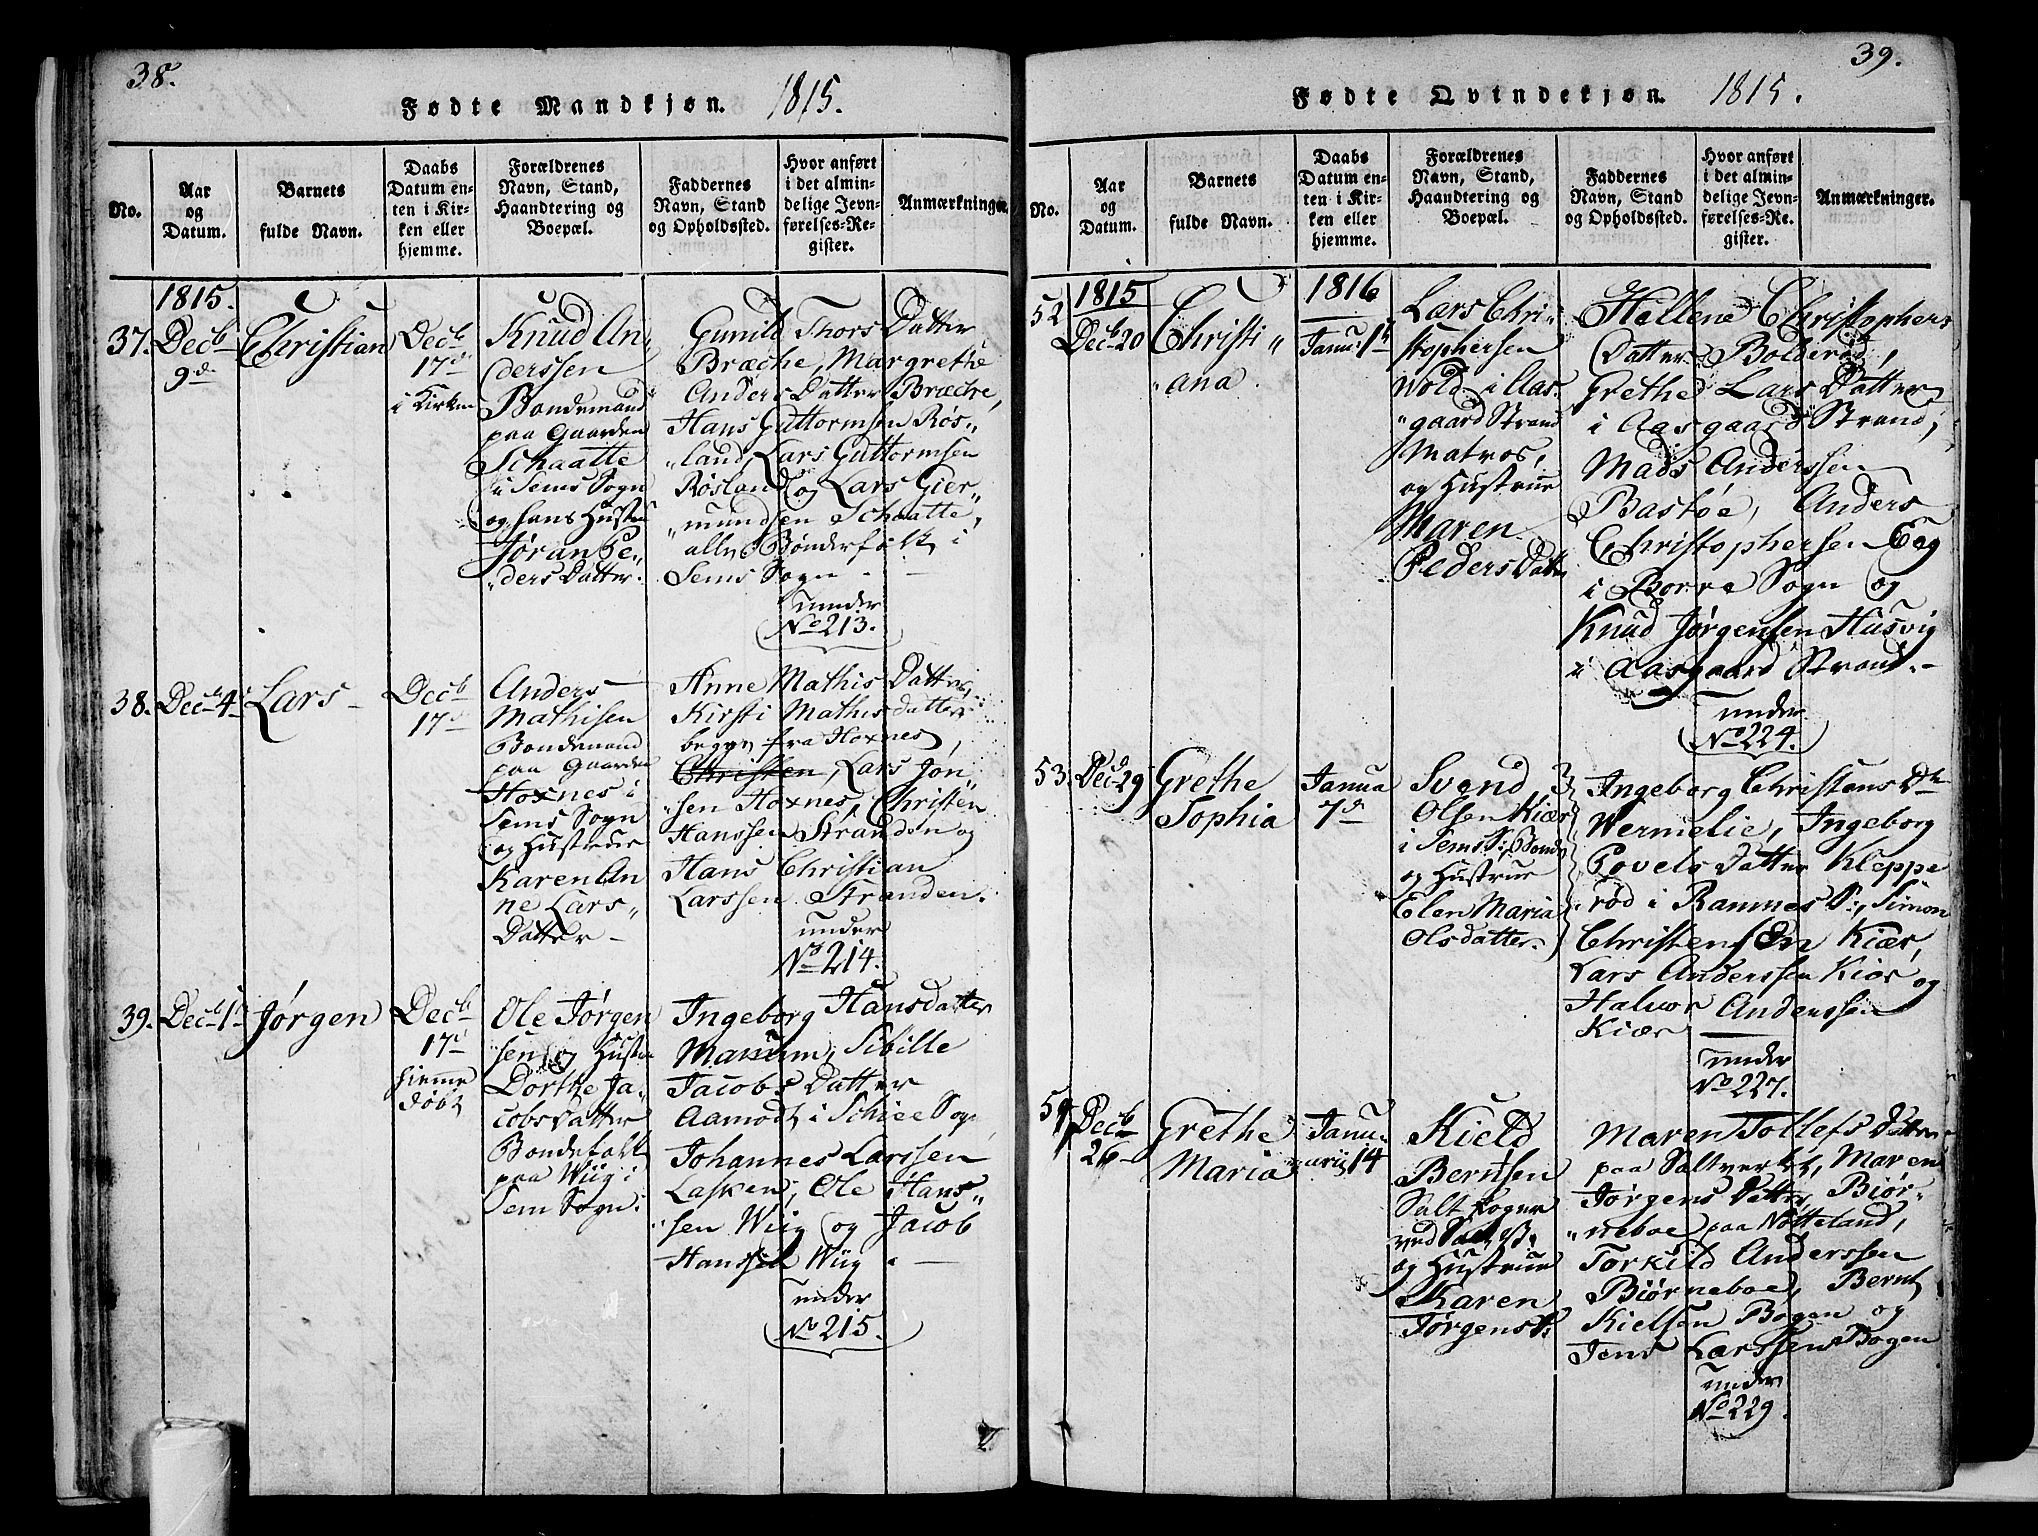 38.
Fødte Mandkjøn. 1815.
No.
Aar
og
Datum.
Barnets
fulde Navn.
Daabs
Datum en-
ten i Kir-
ken eller
hjemme.
Forældrenes
Navn, Stand,
Haandtering og
Boepæl.
Faddernes
Navn, Stand
og Opholdssted.
Hvor anført
i det almin-
delige Jevn-
førelses-Re-
gister.
Anmærkninger.
1815.
37.
Decb
9d.
Christian
Decb
17d
i Kirken
Knud An„
derssen
Bondemand
paa Gaarden
Schaatte
i Sems Sogn
og hans Hustru
Jøran Pe„
„ders Datter.
Gunild Thors Datter
Bræche, Margrethe
Anders Datter Bræche,
Hans Guttormsen Røs„
„land, Lars Guttormsen
Røsland og Lars Gier„
„mundsen Schaatte,
alle Bønderfolk i
Sems Sogn -
under
No 213.
38.
Decb 4
Lars
Decb
17d
Anders
Mathisen
Bondemand
paa Gaarden
Hoxnes i
Sems Sogn
og Hustrue
Karen An
ne Lars„
Datter
Anne Mathis Datter,
Kirsti Mathisdatter
begge fra Hoxnes,
Christen, Lars Jon„
„sen Hoxnes, Christen
Hanssen Stranden og
Hans Christian
Larssen Stranden.
under
No 214.
39.
Decb 1
Jørgen
Decb
17d
hieme
døbt
Ole Jørgen
sen og Hustru
Dorthe Ja„
cobsdatter
Bondefolk
paa Wiig i
Sem Sogn.
Ingeborg Hansdatter
Sibille
Jacobs Datter
Aamodt i Schiee Sogn,
Johannes Larssen
Lasken, Ole Hans„
„sen Wiig og Jacob
Hanssen Wiig
under
No 215.
39.
Fødte Qvindekjøn. 1815.
No.
Aar
og
Datum.
Barnets
fulde Navn.
Daabs
Datum en-
ten i Kir-
ken eller
hjemme.
Forældrenes
Navn, Stand,
Haandtering og
Boepæl.
Faddernes
Navn, Stand
og Opholdssted.
Hvor anført
i det almin-
delige Jevn-
førelses-Re-
gister.
Anmærkninger.
52
1815
Decb 20
Christi„
„ana.
1816
Janu: 1
Lars Chri„
stophersen
Wold i Aas„
„gaard Strand
Matros,
og Hustrue
Maren
Peders Datter
Hellene Christophers
Datter Bolderød,
Grethe Lars Datter
i Aasgaard Strand,
Mads Anderssen
Bastøe, Anders
Christophersen Eeg
i Borre Sogn og
Knud Jørgensen Husvig
i Aasgaard Strand.
under
No 224.
53.
Dec 29
Grethe
Sophia
Janua
7d
Svend
Olsen Kiær
i Sems S: Bonde
og Hustrue
Elen Maria
Olsdatter.
Ingeborg Christens Dtr
Wermelie, Ingeborg
Povels Datter Kleppe
rød i Ramnes S:, Simon
Christensen Kiær,
Lars Anderssen Kiær og
Halvor Anderssen
Kiær
under
No 227.
54
Decb
26
Grethe
Maria
Janu„
„arij 14
Kield
Berntsen
Salt Koger
ved
og Hustrue
Karen
Jørgens
Maren Tollefs Datter
paa Saltverket, Maren
Jørgens Datter Biør„
„neboe paa Nøtteland,
Torkild Anderssen
Biørneboe, Bernt
Kielsen Bogen og
Jens Larssen Bogen
under
No 229.